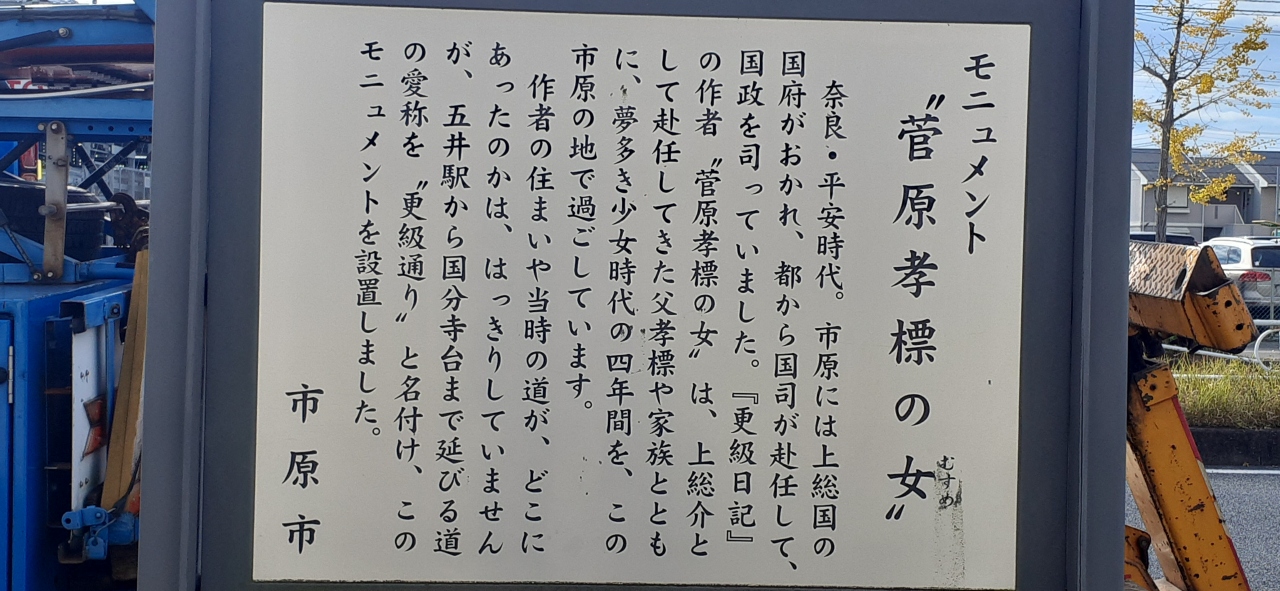 モニュメント
〝菅原孝標の女〟
むすめ
奈良・平安時代。市原には上総国の
国府がおかれ、都から国司が赴任して、
国政を司っていました。『更級日記』
の作者〝菅原孝標の女〟は、上総介と
して赴任してきた父孝標や家族ととも
に、夢多き少女時代の四年間を、この
市原の地で過ごしています。
作者の住まいや当時の道が、どこに
あったのかは、はっきりしていません
が、五井駅から国分寺台まで延びる道
の愛称を〝更級通り〟と名付け、この
モニュメントを設置しました。
市原市